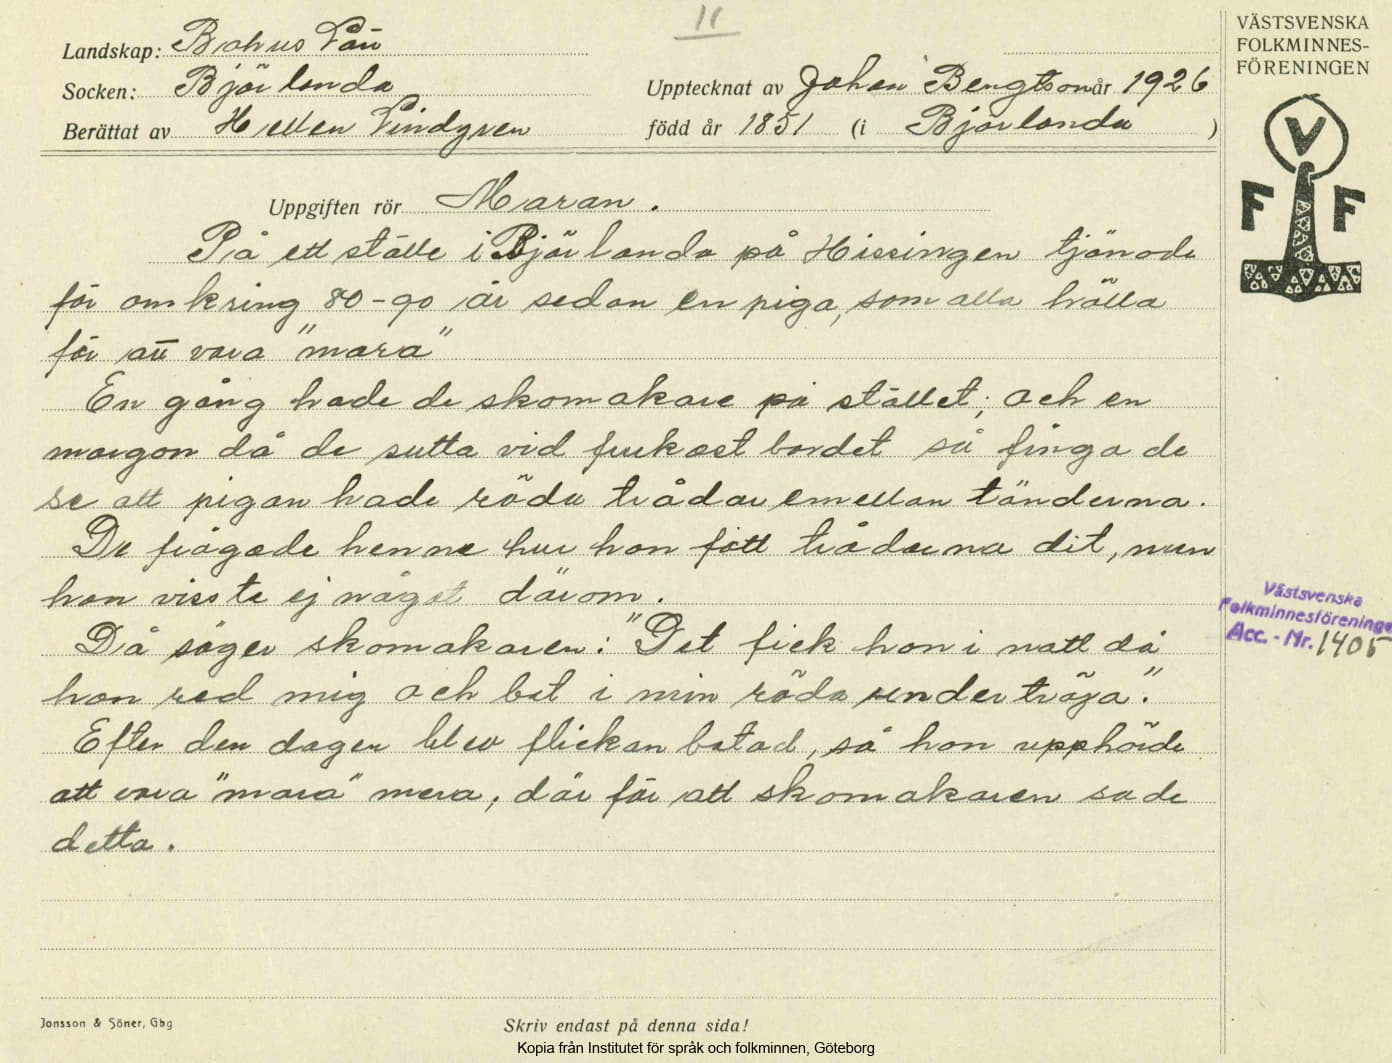 11
VÄSTSVENSKA
FOLKMINNES-
FÖRENINGEN
Landskap: Bohus Län
Socken: Björlanda
Upptecknat av Johan Bengtson år 1926
Berättat av Hellen Lindgren
född år 1851 (i Björlanda )
V
F F
Uppgiften rör Maran.
På ett ställe i Björlanda på Hissingen tjänade
för omkring 80-90 år sedan en piga, som alla hålla
för att vara "mara"
En gång hade de skomakare på stället; och en
morgon då de sutta vid frukost bordet så fingo de
se att pigan hade röda trådar emellan tänderna.
De frågade henne hur hon fått trådarna dit, men
hon visste ej något därom.
Då säger skomakaren: "Det fick hon i natt då
hon red mig och bet i min röda undertröja".
Efter den dagen blev flickan botad, så hon upphörde
att vara "mara" mera, där för att skomakaren sade
detta.
Västsvenska
Folkminnesföreningen
Acc. - Nr. 1405
Jonsson & Söner, Gbg
Skriv endast på denna sida!
Kopia från Institutet för språk och folkminnen, Göteborg